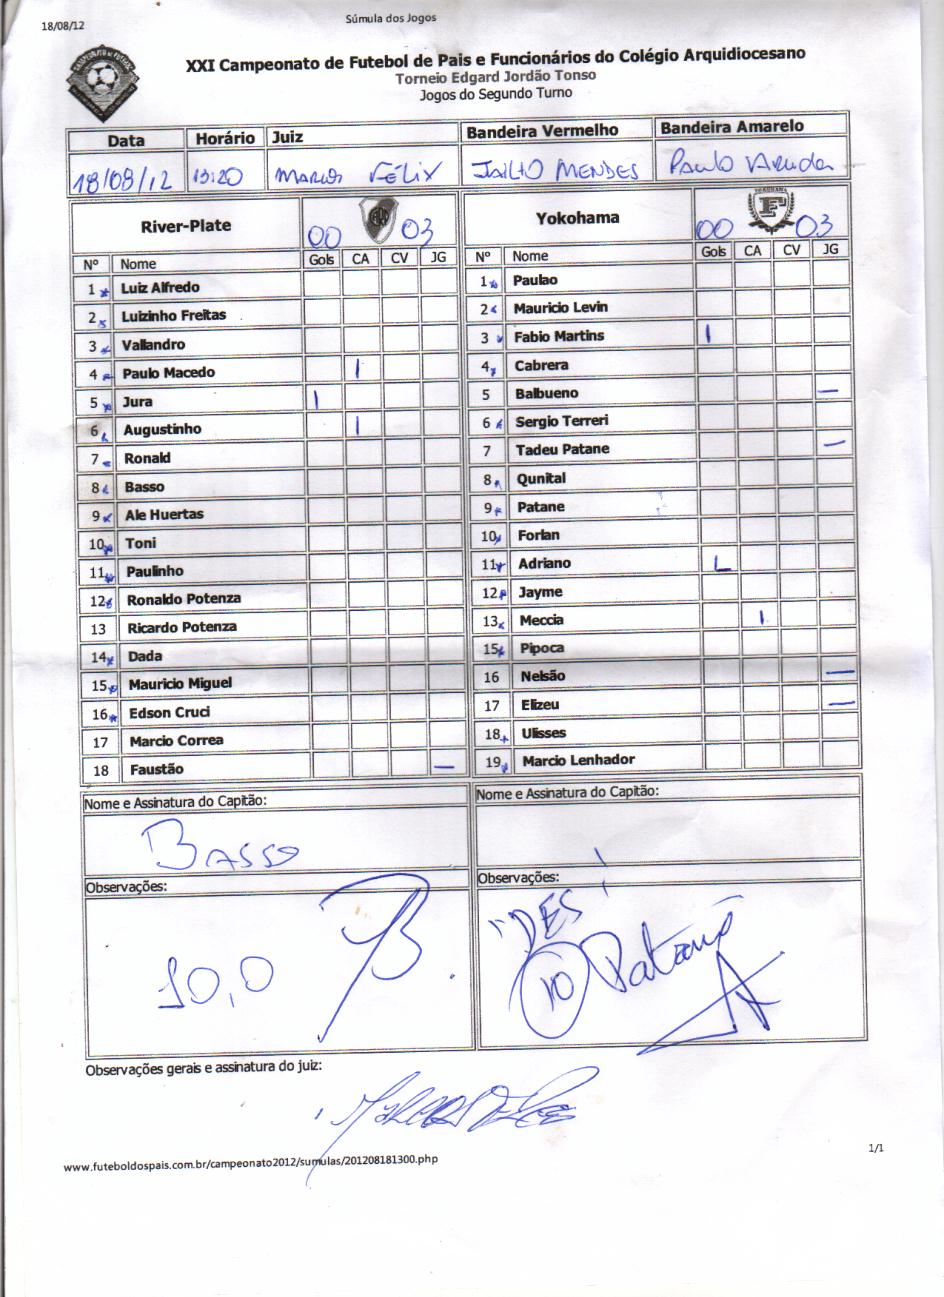 18/08/12 Súmula dos Jogos
XXI Campeonato de Futebol de Pais e Funcionários do Colégio Arquidiocesano
Torneio Edgard Jordão Tonso
Jogos do Segundo Turno
Data Horário Juiz Bandeira Vermelho Bandeira Amarelo
18/08/12 13:20 MARCOS FÉLIX JAILTO MENDES PAULO
River-Plate 00 03 Yokohama 00 03
Nº Nome Gols CA CV JG Nº Nome Gols CA CV JG
1 Luiz Alfredo 1 Paulao
2 Luizinho Freitas 2 Mauricio Levin
3 Vallandro 3 Fabio Martins I
4 Paulo Macedo I 4 Cabrera
5 Jura I 5 Balbueno —
6 Augustinho I 6 Sergio Terreri
7 Ronald 7 Tadeu Patane —
8 Basso 8 Qunital
9 Ale Huertas 9 Patane
10 Toni 10 Forlan
11 Paulinho 11 Adriano L
12 Ronaldo Potenza 12 Jayme
13 Ricardo Potenza 13 Meccia I
14 Dada 15 Pipoca
15 Mauricio Miguel 16 Nelsão —
16 Edson Cruci 17 Elizeu —
17 Marcio Correa 18 Ulisses
18 Faustão — 19 Marcio Lenhador
Nome e Assinatura do Capitão: Nome e Assinatura do Capitão:
BASSO
Observações: Observações:
"DES!
10,0 B. 10 Patané
Observações gerais e assinatura do juiz:
1/1
www.futeboldospais.com.br/campeonato2012/sumulas/201208181300.php